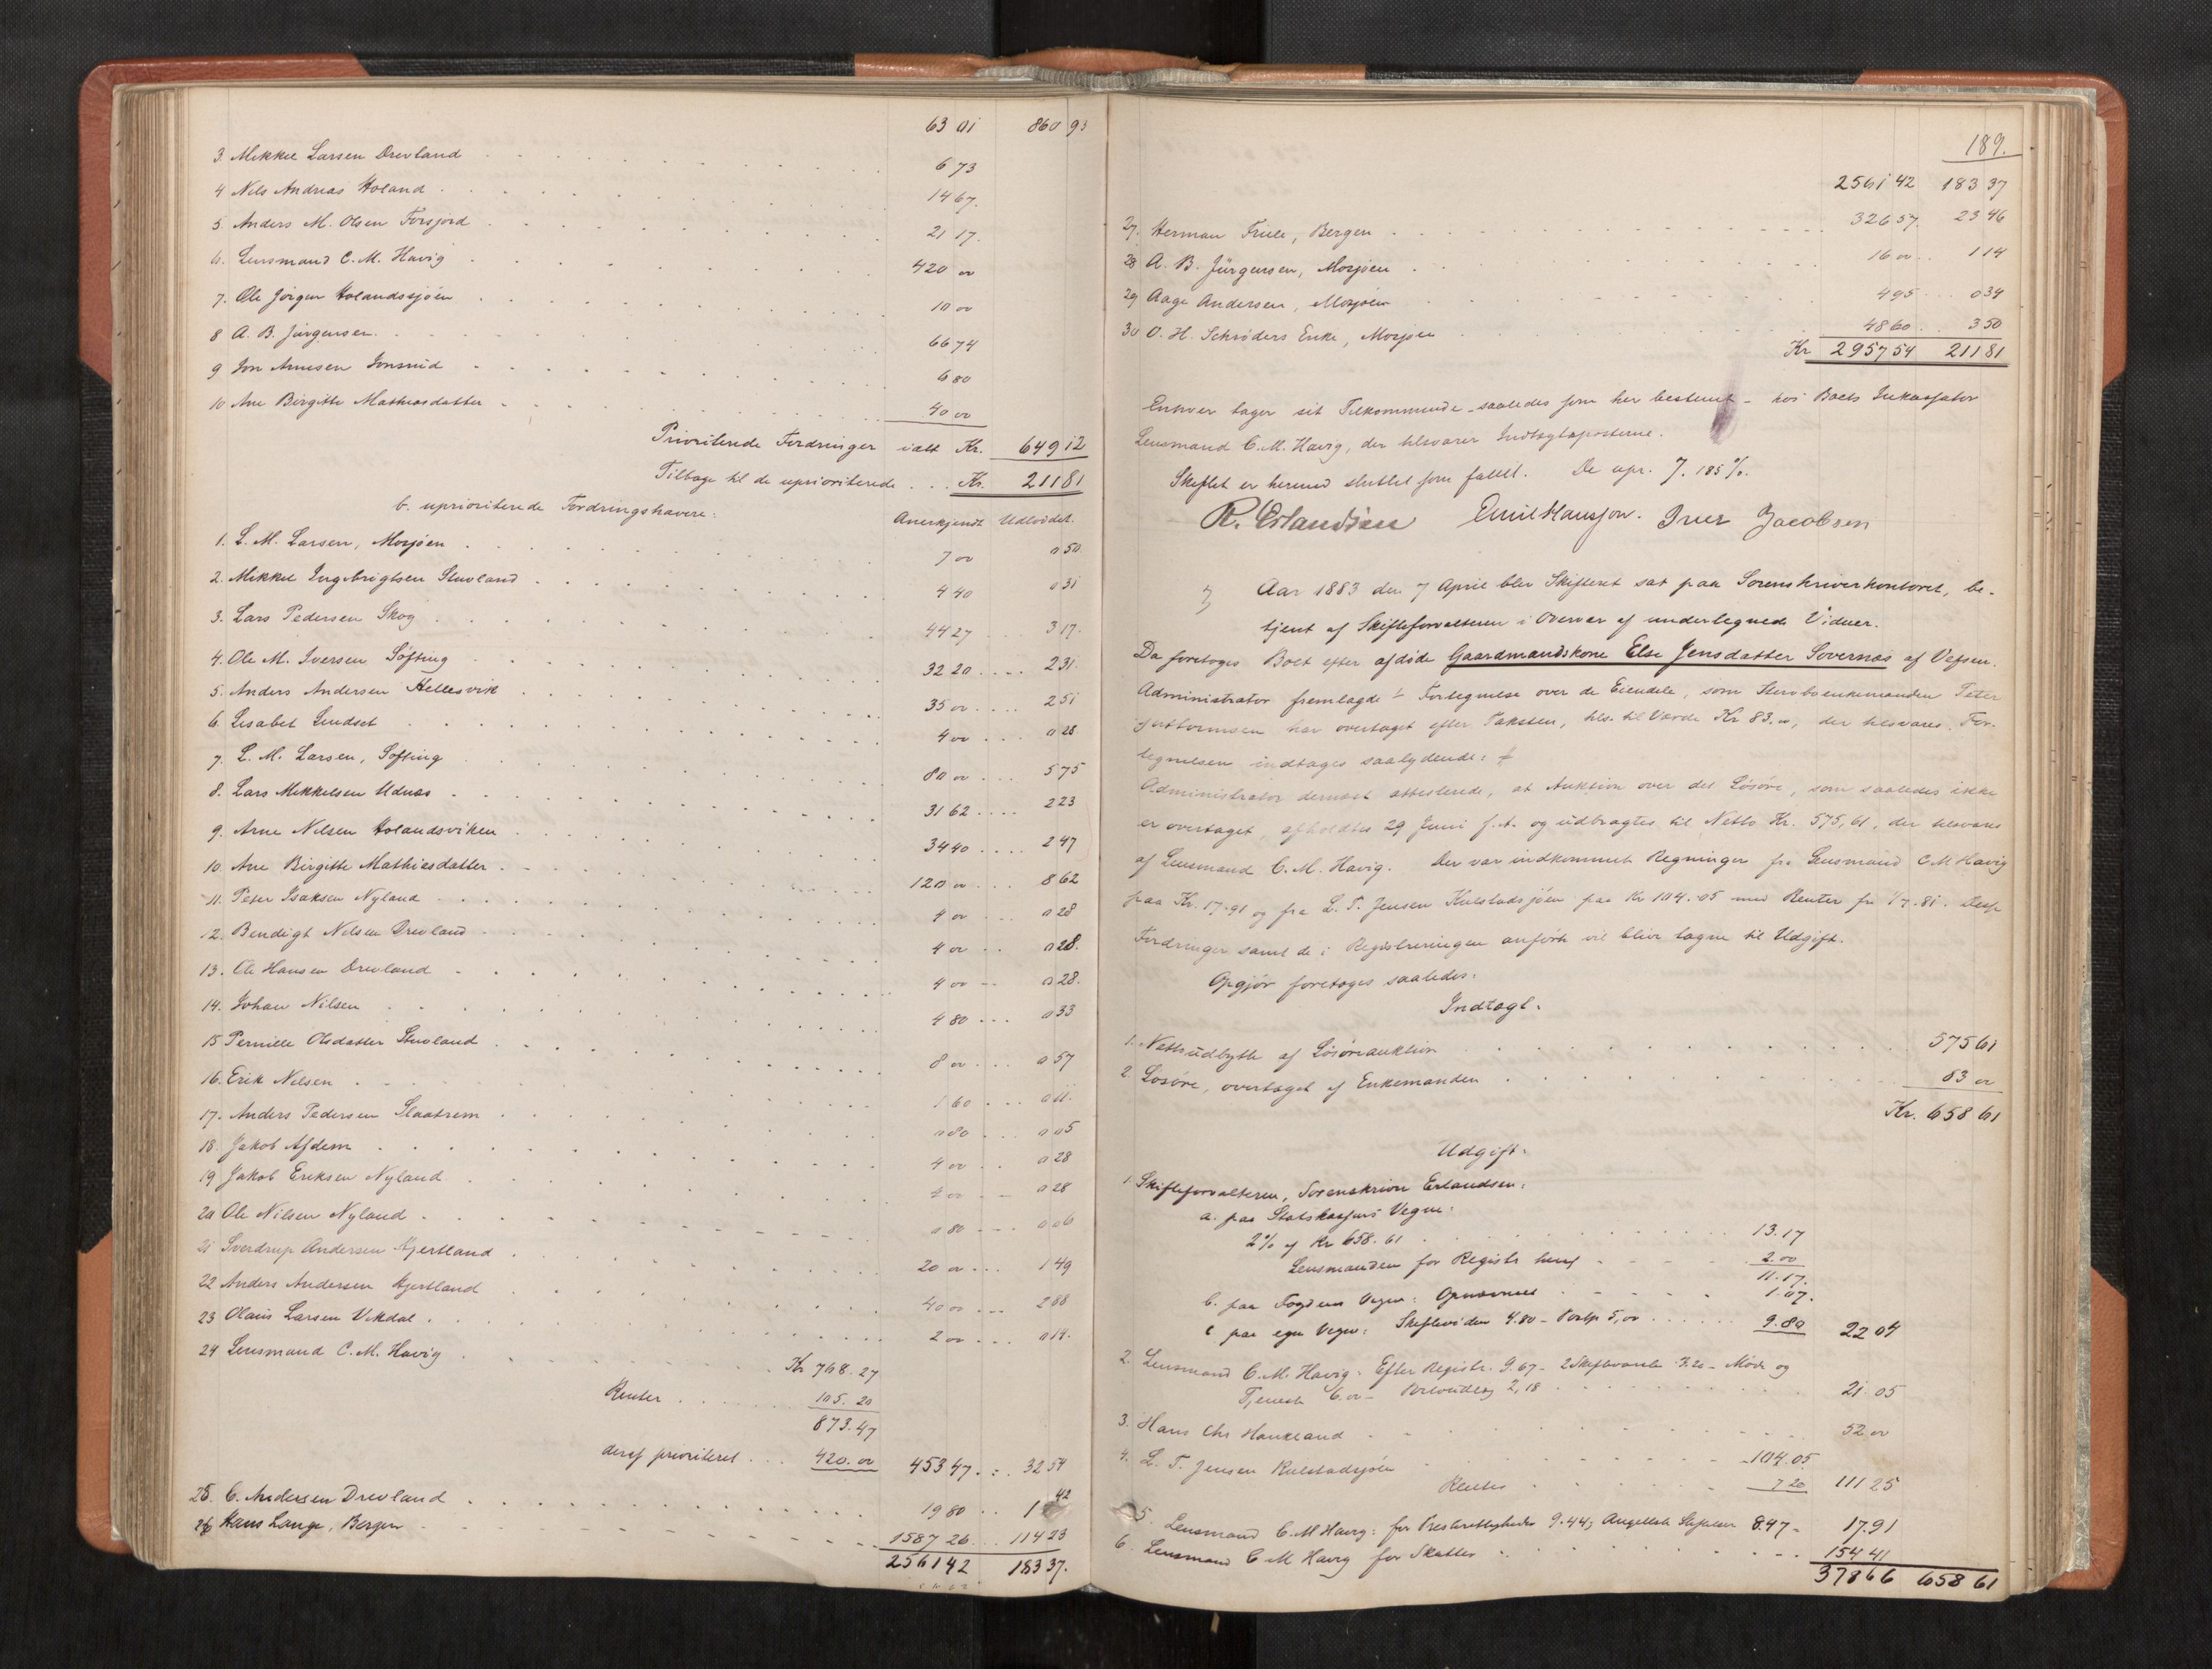 63 01 860 93
3. Mikkel Larsen Drevland 6 73
4 Nils Andreas Holand 14 67.
5. Anders M. Olsen Forsjord 21 17.
6. Lensmand C. M. Havig 420 00
7. Ole Jörgen Holandssjøen 10 00
8 A. B. Jürgensen 66 74
9 Jon Arnesen 6 80
10 Ane Birgitte Mathiasdatter 40 00
Prioriterede Fordringer ialt Kr. 649 12
Tilbage til de uprioriterede Kr. 211 81
b. uprioriterede Fordringshavere: Anerkjendt Udloddet.
1. L. M. Larsen, Mosjøen 7 00 0 50.
2. Mikkel Ingebrigtsen Stuvland 4 40 0 31
3. Lars Pedersen Skog 44 27 3 17.
4. Ole M. Iversen Søfting 32 20 2 31.
5. Anders Andersen Hellesvik 35 00 2 51
6. Lisabet Lindset 4 00 0 28
7. L. M. Larsen, Søfting 80 00 5 75
8. Lars Mikkelsen Udnæs 31 62 2 23
9. Arne Nilsen Holandsviken 34 40 2 47
10. Ane Birgitte Mathiasdatter 120 00 8 62
11. Peter Isaksen Nyland 4 00 0 28
12. Bendigt Nilsen Drevland 4 00 0 28.
13. Ole Hansen Drevland 4 00 0 28.
14. Johan Nilsen 4 80 0 33
15 Pernille Olsdatter Stuvland 8 00 0 57
16. Erik Nilsen 1 60 0 11.
17. Anders Pedersen Slaatrem 0 80 0 05
18. Jakob Afdem 4 00 0 28
19 Jakob Eriksen Nyland 4 00 0 28
20 Ole Nilsen Nyland 0 80 0 06
21 Sverdrup Andersen Hjertland 20 00 1 49
22 Anders Andersen Hjertland 40 00 2 88
23 Olaus Larsen Vikdal 2 00 0 14.
24 Lensmand C. M. Havig Kr 768.27
Renter 105.20
873.47
deraf prioriteret 420.00 453 47 32 54
25. C. Andersen Drevland 19 80 1 42
26 Hans Lange, Bergen 1587 26 114 23
2561 42 183 37.
189.
2561 42 183 37
27. Herman Friele, Bergen 326 57. 23 46
28 A. B. Jürgensen, Mosjøen 16 00 1 14
29 Aage Andersen, Mosjøen 4 95 0 34
30 O. H. Schrøders Enke, Mosjøen 48 60 3 50
Kr 2957 54 211 81
Enhver tager sit Tilkommende saaledes som her bestemt hos Boets Inkassator
Lensmand C. M. Havig, der tilsvarer Indtægtsposterne.
Skiftet er hermed sluttet som fallit. De upr. 7.185%.
R. Erlandsen Emil Hansson. Iver Jacobsen
Aar 1883 den 7 April blev Skifteret sat paa Sorenskriverkontoret, be-
tjent af Skifteforvalteren i Overvær af underlegnede Vidner.
Da foretoges Boet efter afdøde Gaardmandskone Else Jensdatter Sovernæs af Vefsen.
Administrator fremlagde Fortegnelse over de Eiendele, som Stervboenkemanden Peter
har overtaget efter Taksten, tils. til Værde Kr 83.00, der tilsvares. For-
tegnelsen indtages saalydende: ⨍
Administrator dernæst attesterede, at Auktion over det Løsøre, som saaledes ikke
er overtaget, afholdtes 29 Juni f. A. og udbragtes til Netto Kr. 575,61, der tilsvares
af Lensmand C. M. Havig. Der var indkommet Regninger fra Lensmand C M Havig
paa Kr. 17.91 og fra L. T. Jensen Kulstadsjøen paa Kr 104.05 med Renter fra 1/7.81. Disse
Fordringer samt de i Registreringen anførte vil blive tagne til Udgift.
Opgjør foretoges saaledes:
Indtægt.
1. Nettoudbytte af Løsøreauktion 575 61
2. Løsøre, overtaget af Enkemanden 83 00
Kr. 658 61
Udgift.
1. Skifteforvalteren, Sorenskriver Erlandsen:
a. paa Statskassens Vegne:
2% af Kr 658.61 13.17
Lensmanden for Registr. 2.00
11.17.
b. paa Fogdens Vegne: 1.07.
c. paa egne Vegne: Skiftevidner 4.80 - Porto 5,00 9.80 22 04
2. Lensmand C. M. Havig: Efter Registr. 9.67 - 2 Skiftevarsler 3.20 - Møde og
Tjeneste 6.00 - Portoudlæg 2,18 21 05
3. Hans Chr Haukland 52 00
4. L. T. Jensen Kulstadsjøen 104.05
Renter 7 20 111 25
5. Lensmand C. M Havig: for Presterettigheder 9.44, Skifter 8.47 - 17.91
6. Lensmand C M Havig for Skatter 154 41
378 66 658 61